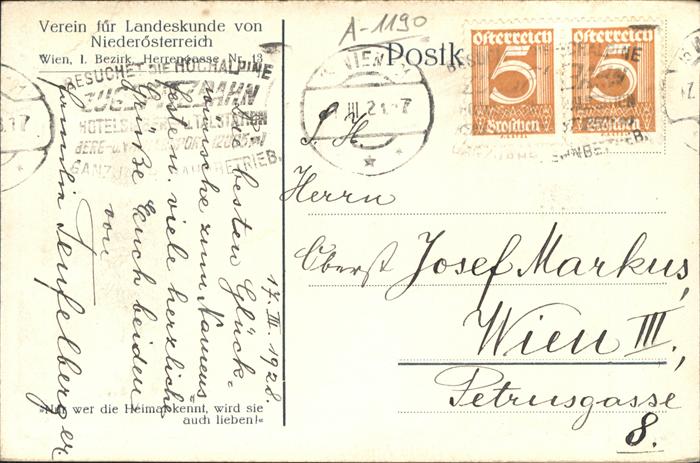 Verein für Landeskunde von
Niederösterreich
Wien, I. Bezirk, Herrengasse Nr. 13
A-1190
Postk
Österreich
5
Groschen
Österreich
5
Groschen
BESUCHET DIE HOCHALPINE
BAHN
GANZ BETRIEB.
WIEN
III. 2 -7
17. III. 1928.
Die besten Glück-
wünsche zum Namens
besten. viele herzliche
Grüße Euch beiden
von
Familie Teufelberger
S. H.
Herrn
Oberst Josef Markus,
Wien III,
Petrusgasse
8.
»Nur wer die Heimat kennt, wird sie
auch lieben!«